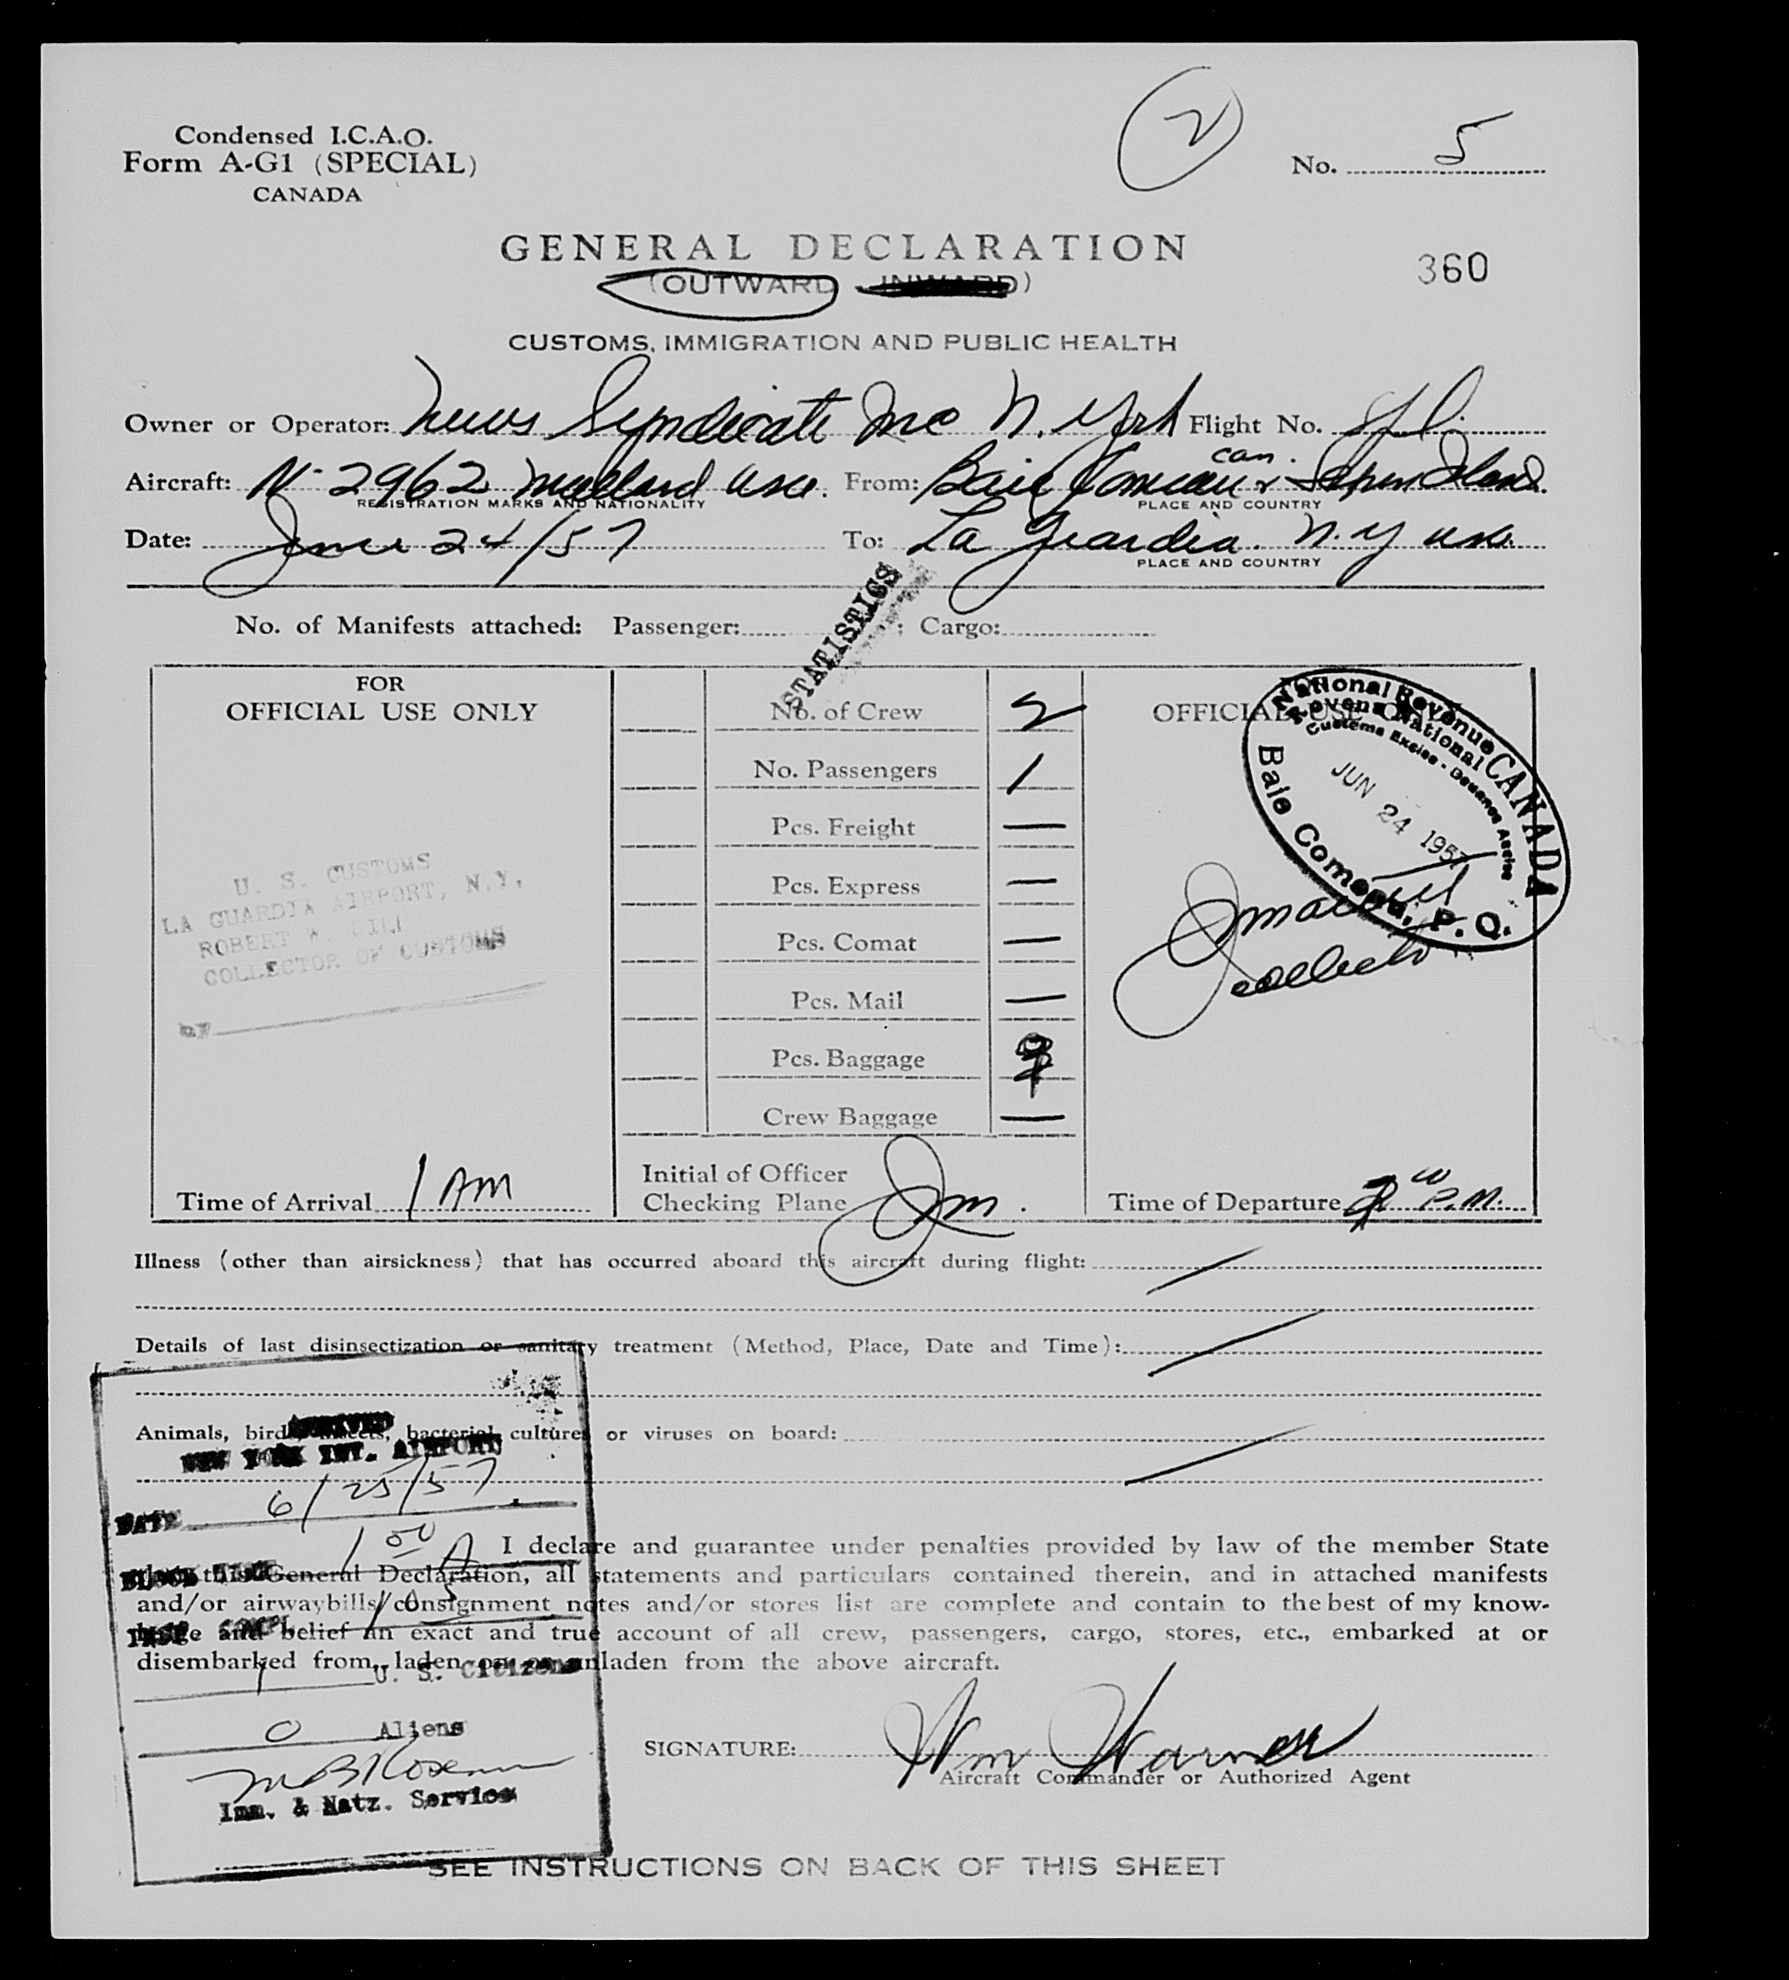 Condensed I.C.A.O.
Form A-G1 (SPECIAL)
CANADA
2
No. 5
GENERAL DECLARATION
(OUTWARD - INWARD)
360
CUSTOMS, IMMIGRATION AND PUBLIC HEALTH
Owner or Operator: News Syndicate Inc N. York Flight No.
Aircraft: N-2962 Mallard usa. From: Baie Comeau can.
REGISTRATION MARKS AND NATIONALITY PLACE AND COUNTRY
Date: June 24/57 To: La Guardia. N.Y usa.
PLACE AND COUNTRY
STATISTICS
No. of Manifests attached: Passenger: ; Cargo:
FOR
OFFICIAL USE ONLY
U. S. CUSTOMS
LA GUARDIA AIRPORT, N.Y.
ROBERT W. DILL
COLLECTOR OF CUSTOMS
BY
Time of Arrival 1 AM
No. of Crew 2
No. Passengers 1
Pcs. Freight —
Pcs. Express —
Pcs. Comat —
Pcs. Mail —
Pcs. Baggage
Crew Baggage —
Initial of Officer
Checking Plane Jm.
OFFICIAL USE ONLY
National Revenue CANADA
Revenu National
Customs Excise - Douanes Accise
JUN 24 1957
Baie Comeau, P. Q.
Time of Departure P.M.
Illness (other than airsickness) that has occurred aboard this aircraft during flight:
Details of last disinsectization or sanitary treatment (Method, Place, Date and Time):
Animals, birds, insects, bacterial cultures or viruses on board:
ARRIVED
NEW YORK INT. AIRPORT
DATE 6/25/57
1 00 A
BLOCK TIME
INSP COMPL 1 05
1 U. S. Citizens
0 Aliens
Imm. & Natz. Service
I declare and guarantee under penalties provided by law of the member State
that this General Declaration, all statements and particulars contained therein, and in attached manifests
and/or airwaybills/consignment notes and/or stores list are complete and contain to the best of my know-
ledge and belief an exact and true account of all crew, passengers, cargo, stores, etc., embarked at or
disembarked from, laden on or unladen from the above aircraft.
SIGNATURE: Wm Warner
Aircraft Commander or Authorized Agent
SEE INSTRUCTIONS ON BACK OF THIS SHEET